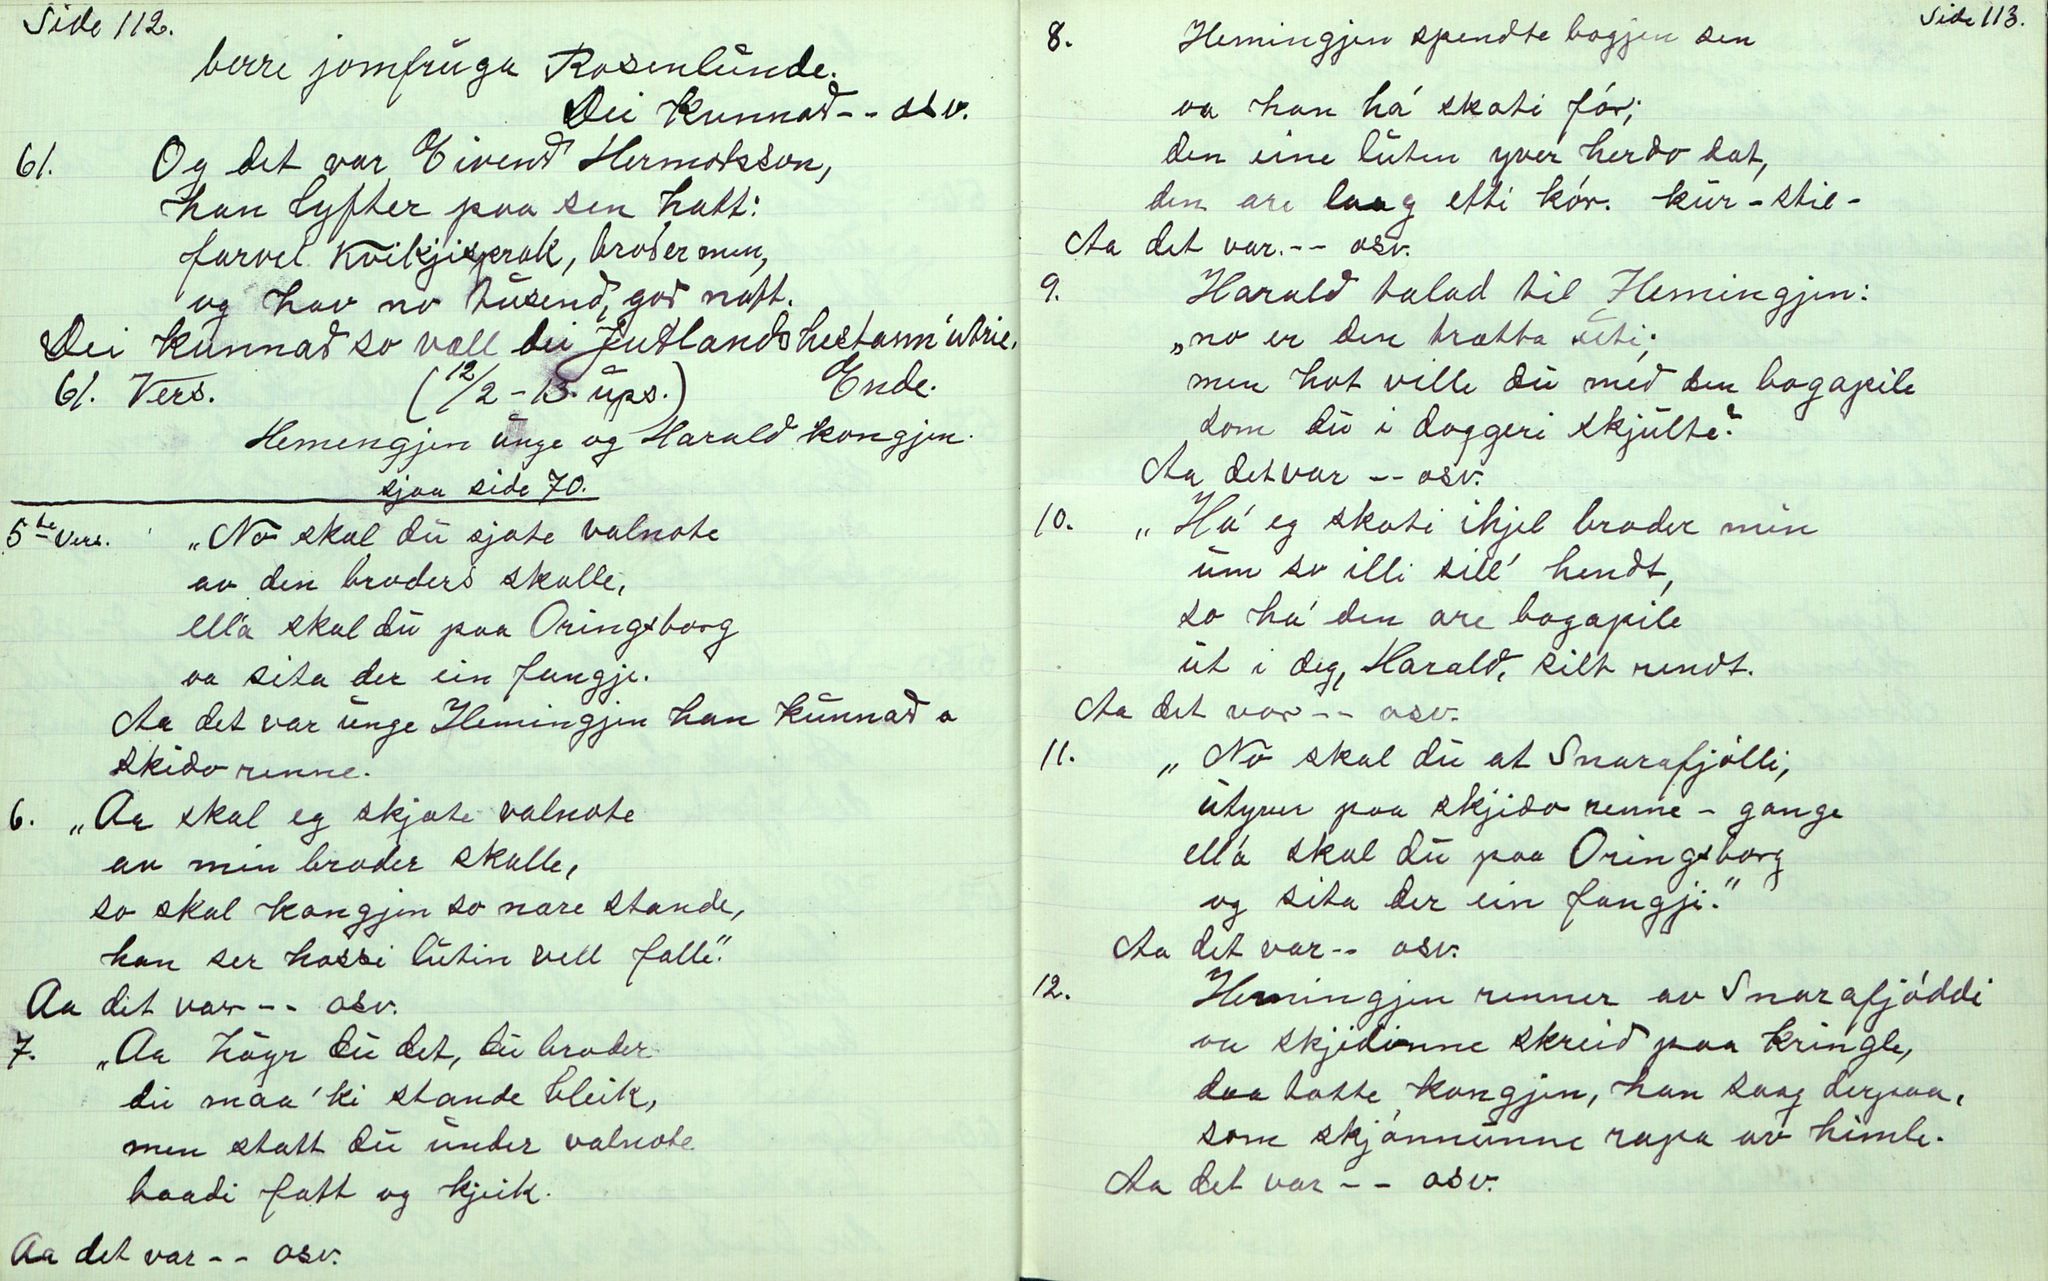 Side 112.
berre jomfruga Rosenlunde.
Dei kunnad -- osv.
61. Og det var Eivend Hermodsson,
han lyfter paa sen hatt:
farvel Kvikjisprak, broder men,
og hav no tusend, god natt.
Dei kunnad so væll dei Jutlandshestann' utrie.
61. Vers. (12/2 - 13. ups.) Ende.
Hemengjen unge og Harald kongjen.
sjaa side 70.
5te Vers. „No skal du sjote valnote
av den broders skalle,
ell'a skal du paa Oringsborg
oa sita der ein fangje.
Aa det var unge Hemingjen han kunnad o
skido renne.
6. „Aa skal eg skjote valnote
av min broder skalle,
so skal kongjen so nære stande,
han ser hossi lutin vell falle."
Aa det var -- osv.
7. „Aa høyr du det, du broder
du maa 'ki stande bleik,
men statt du under valnote
baadi fatt og kjeik.
Aa det var -- osv.
Side 113.
8. Hemingjen spendte bogjen sen
oa han há' skoti fór;
den eine luten yver herdo dat,
den are laag etti kór. kúr - stil -
Aa det var. -- osv.
9. Harald talad til Hemingjen:
„no er den trætta uti;
men hot ville du med den bogapile
som du i doggeri skjulte?
Aa det var -- osv.
10. „Há' eg skoti ihjel broder min
um so illi sill' hendt,
so há' den are bogapile
ut i deg, Harald, silt rendt.
Aa det var -- osv.
11. „No skal du at Snarafjölli,
utyver paa skjido renne - gange
ell'a skal du paa Oringsborg
og sita der ein fangji."
Aa det var -- osv.
12. Hemingjen renner av Snarafjóddi
oa skjidinne skreid paa kringle,
daa totte kongjen, han saag derpaa,
som skjönnunne rapa av himle.
Aa det var -- osv.